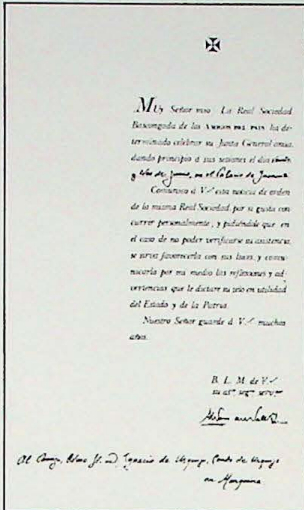 Muy Señor mio: La Real Sociedad
Bascongada de los AMIGOS DEL PAIS ha de-
terminado celebrar su Junta General anua,
dando principio á sus sesiones el dia
y de Junio, en el Palacio de
Comunico á V. esta noticia de orden
de la misma Real Sociedad, por si gusta con-
currir personalmente, y pidiéndole que en
el caso de no poder verificarse su asistencia,
se sirva favorecerla con sus luces, y comu-
nicarla por mi medio las reflexiones y ad-
vertencias que le dictare su zelo en utilidad
del Estado y de la Patria.
Nuestro Señor guarde á V. muchos
años.
B. L. M. de V.
su
Al Ignacio de Urquijo, Conde de Urquijo
en